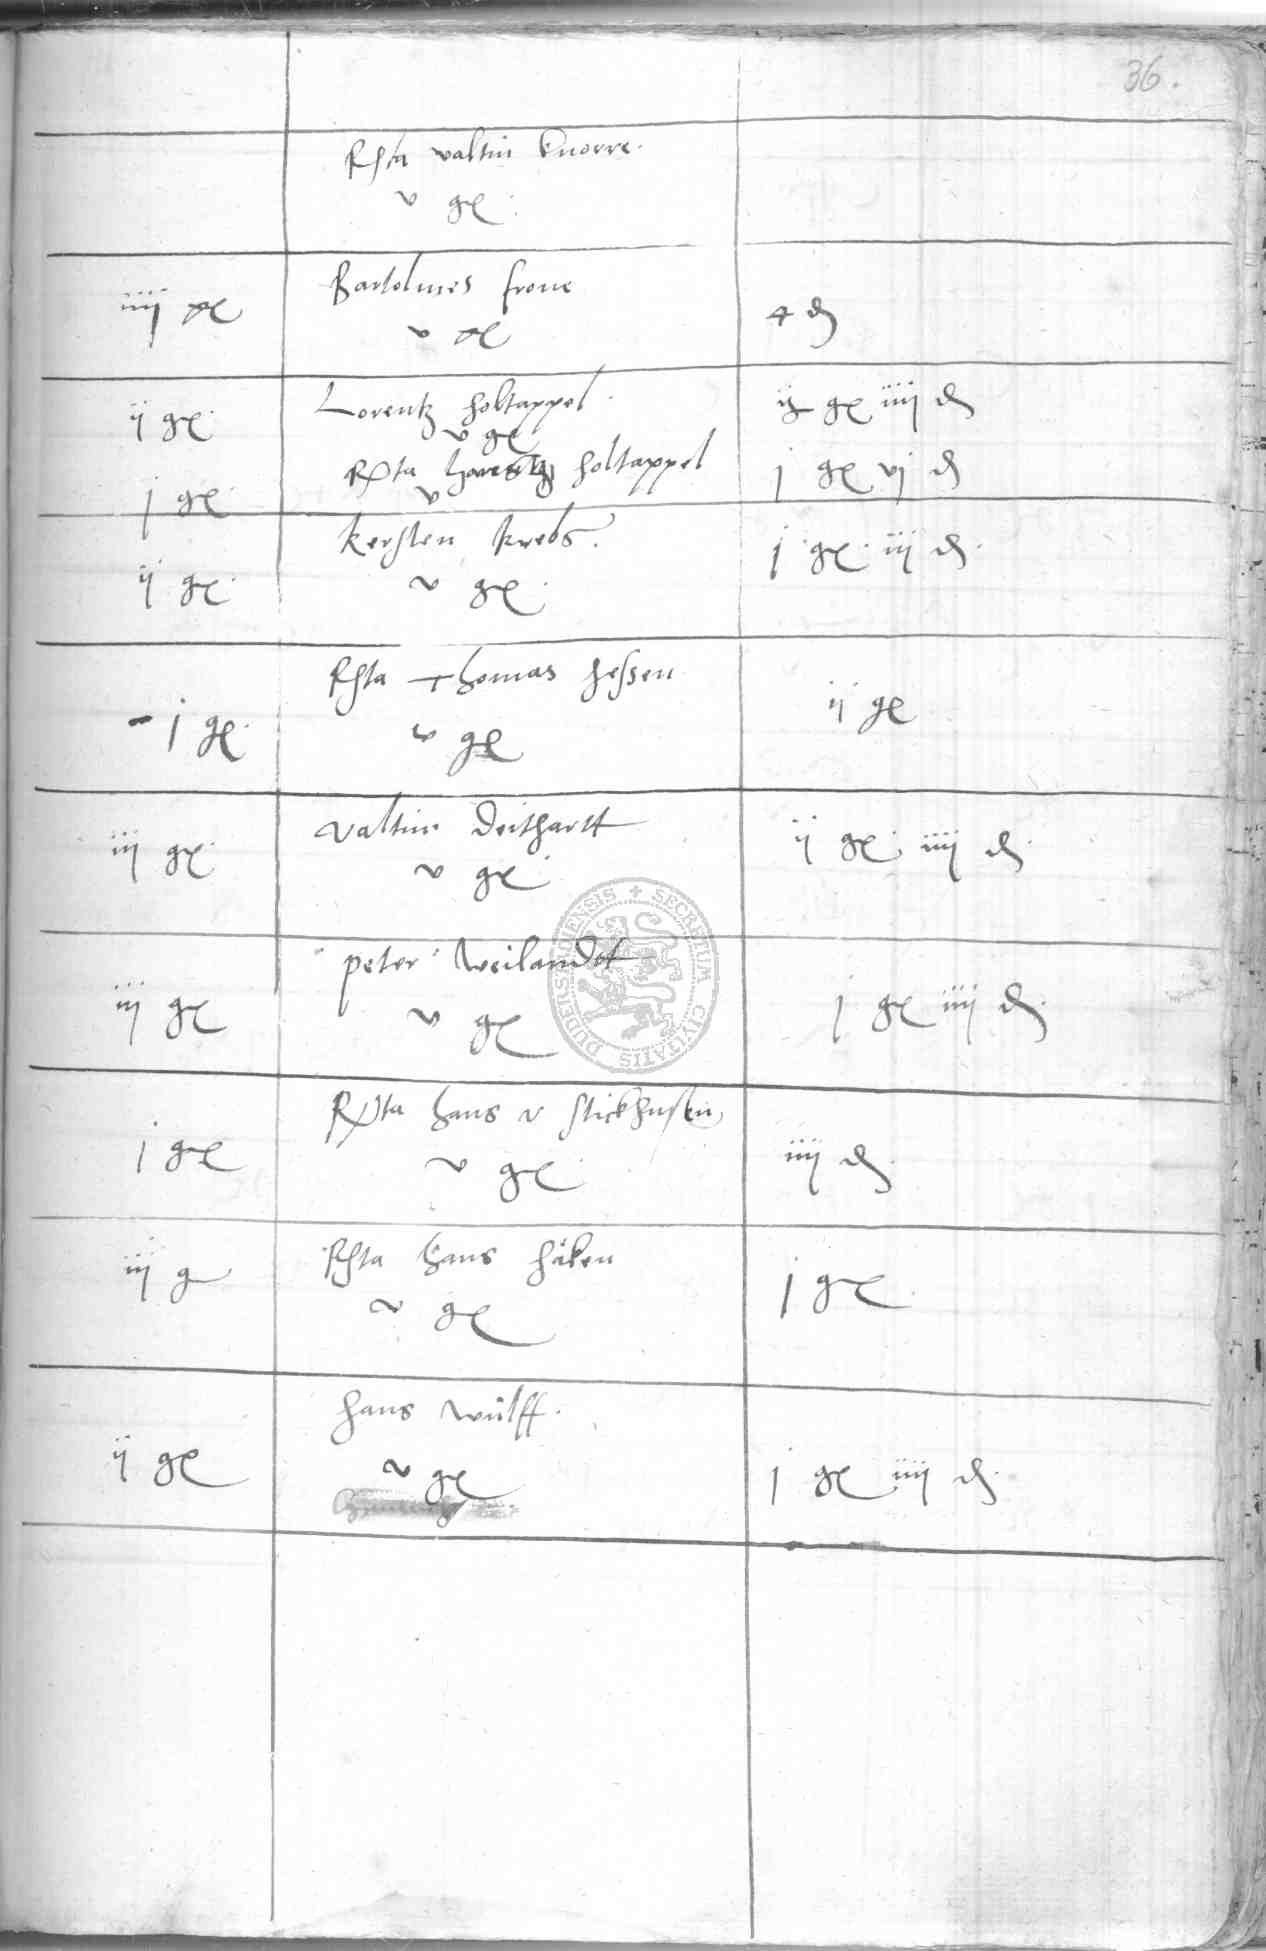 36.
Rsta valtin knorre.
v ge.
iiij ge
Bartolmes frone
v ge
4 d
ij ge.
Lorentz holtappel.
v ge
ij ge iiij d
j ge.
Rsta holtappel
v
j ge vj d
ij ge.
kersten krebs.
v ge.
j ge. iij d.
j ge.
Rsta Thomas hessen
v ge
ij ge
iij ge.
valtin deithartt
v ge
ij ge. iiij d.
iij ge
peter weilandt
v ge
j ge iiij d.
j ge
Rsta hans v stickhusen
v ge.
iiij d.
iij g
Rsta hans håken
v ge
j ge.
ij ge
hans wulff.
v ge
j ge iiij d.
SECRETUM CIVITATIS DUDERSTADIENSIS